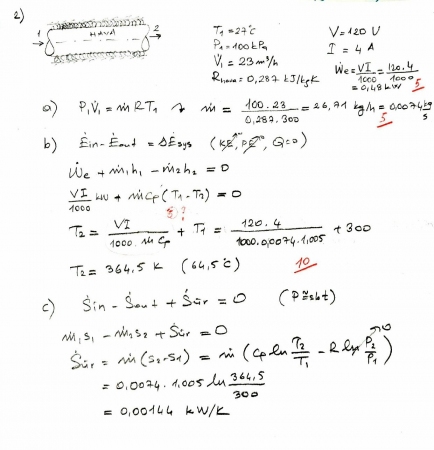 2)
HAVA
1 2
T₁ = 27°C
P₁ = 100 kPa
V̇₁ = 23 m³/h
R_hava = 0,287 kJ/kgK
V = 120 V
I = 4 A
Ẇe = VI/1000 = 120.4/1000 = 0,48 kW 5
a) P₁V̇₁ = ṁRT₁ ṁ = 100.23/0,287.300 = 26,71 kg/h = 0,0074 kg/s
5
b) Ėin - Ėout = ΔĖsys (KE, PE, Q=0)
Ẇe + ṁ₁h₁ - ṁ₂h₂ = 0
VI/1000 kW + ṁCp(T₁-T₂) = 0
T₂ = VI/1000.ṁCp + T₁ = 120.4/1000.0,0074.1,005 + 300
T₂ = 364,5 K (64,5°C) 10
c) Ṡin - Ṡout + Ṡür = 0 (P≅sbt)
ṁ₁s₁ - ṁ₁s₂ + Ṡür = 0
Ṡür = ṁ(s₂-s₁) = ṁ(Cp ln T₂/T₁ - R ln P₂/P₁) 0
= 0,0074.1,005 ln 364,5/300
= 0,00144 kW/K